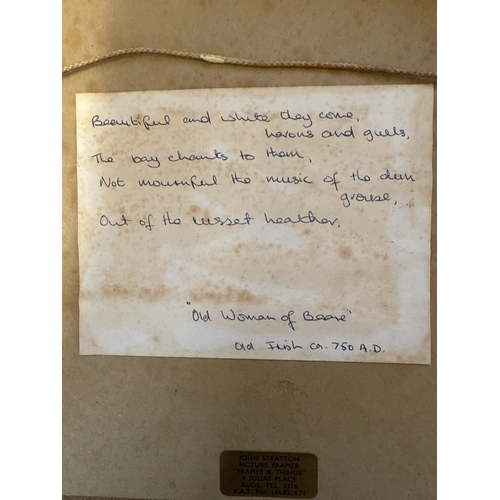 Beautiful and white they come,
herons and gulls,
The bay chants to them,
Not mournful the music of the dun
grouse,
Out of the russet heather.
"Old Woman of Beare"
Old Irish ca. 750 A.D.
JOHN STRATTON
PICTURE FRAMER
"FRAMES & THINGS"
4 JULIAS PLACE
BUDE. TEL. 3216
V.A.T. No.